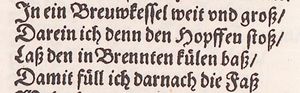 In ein Breuwkessel weit vnd groß/
Darein ich denn den Hopffen stoß/
Laß den in Brennten külen baß/
Damit füll ich darnach die Faß